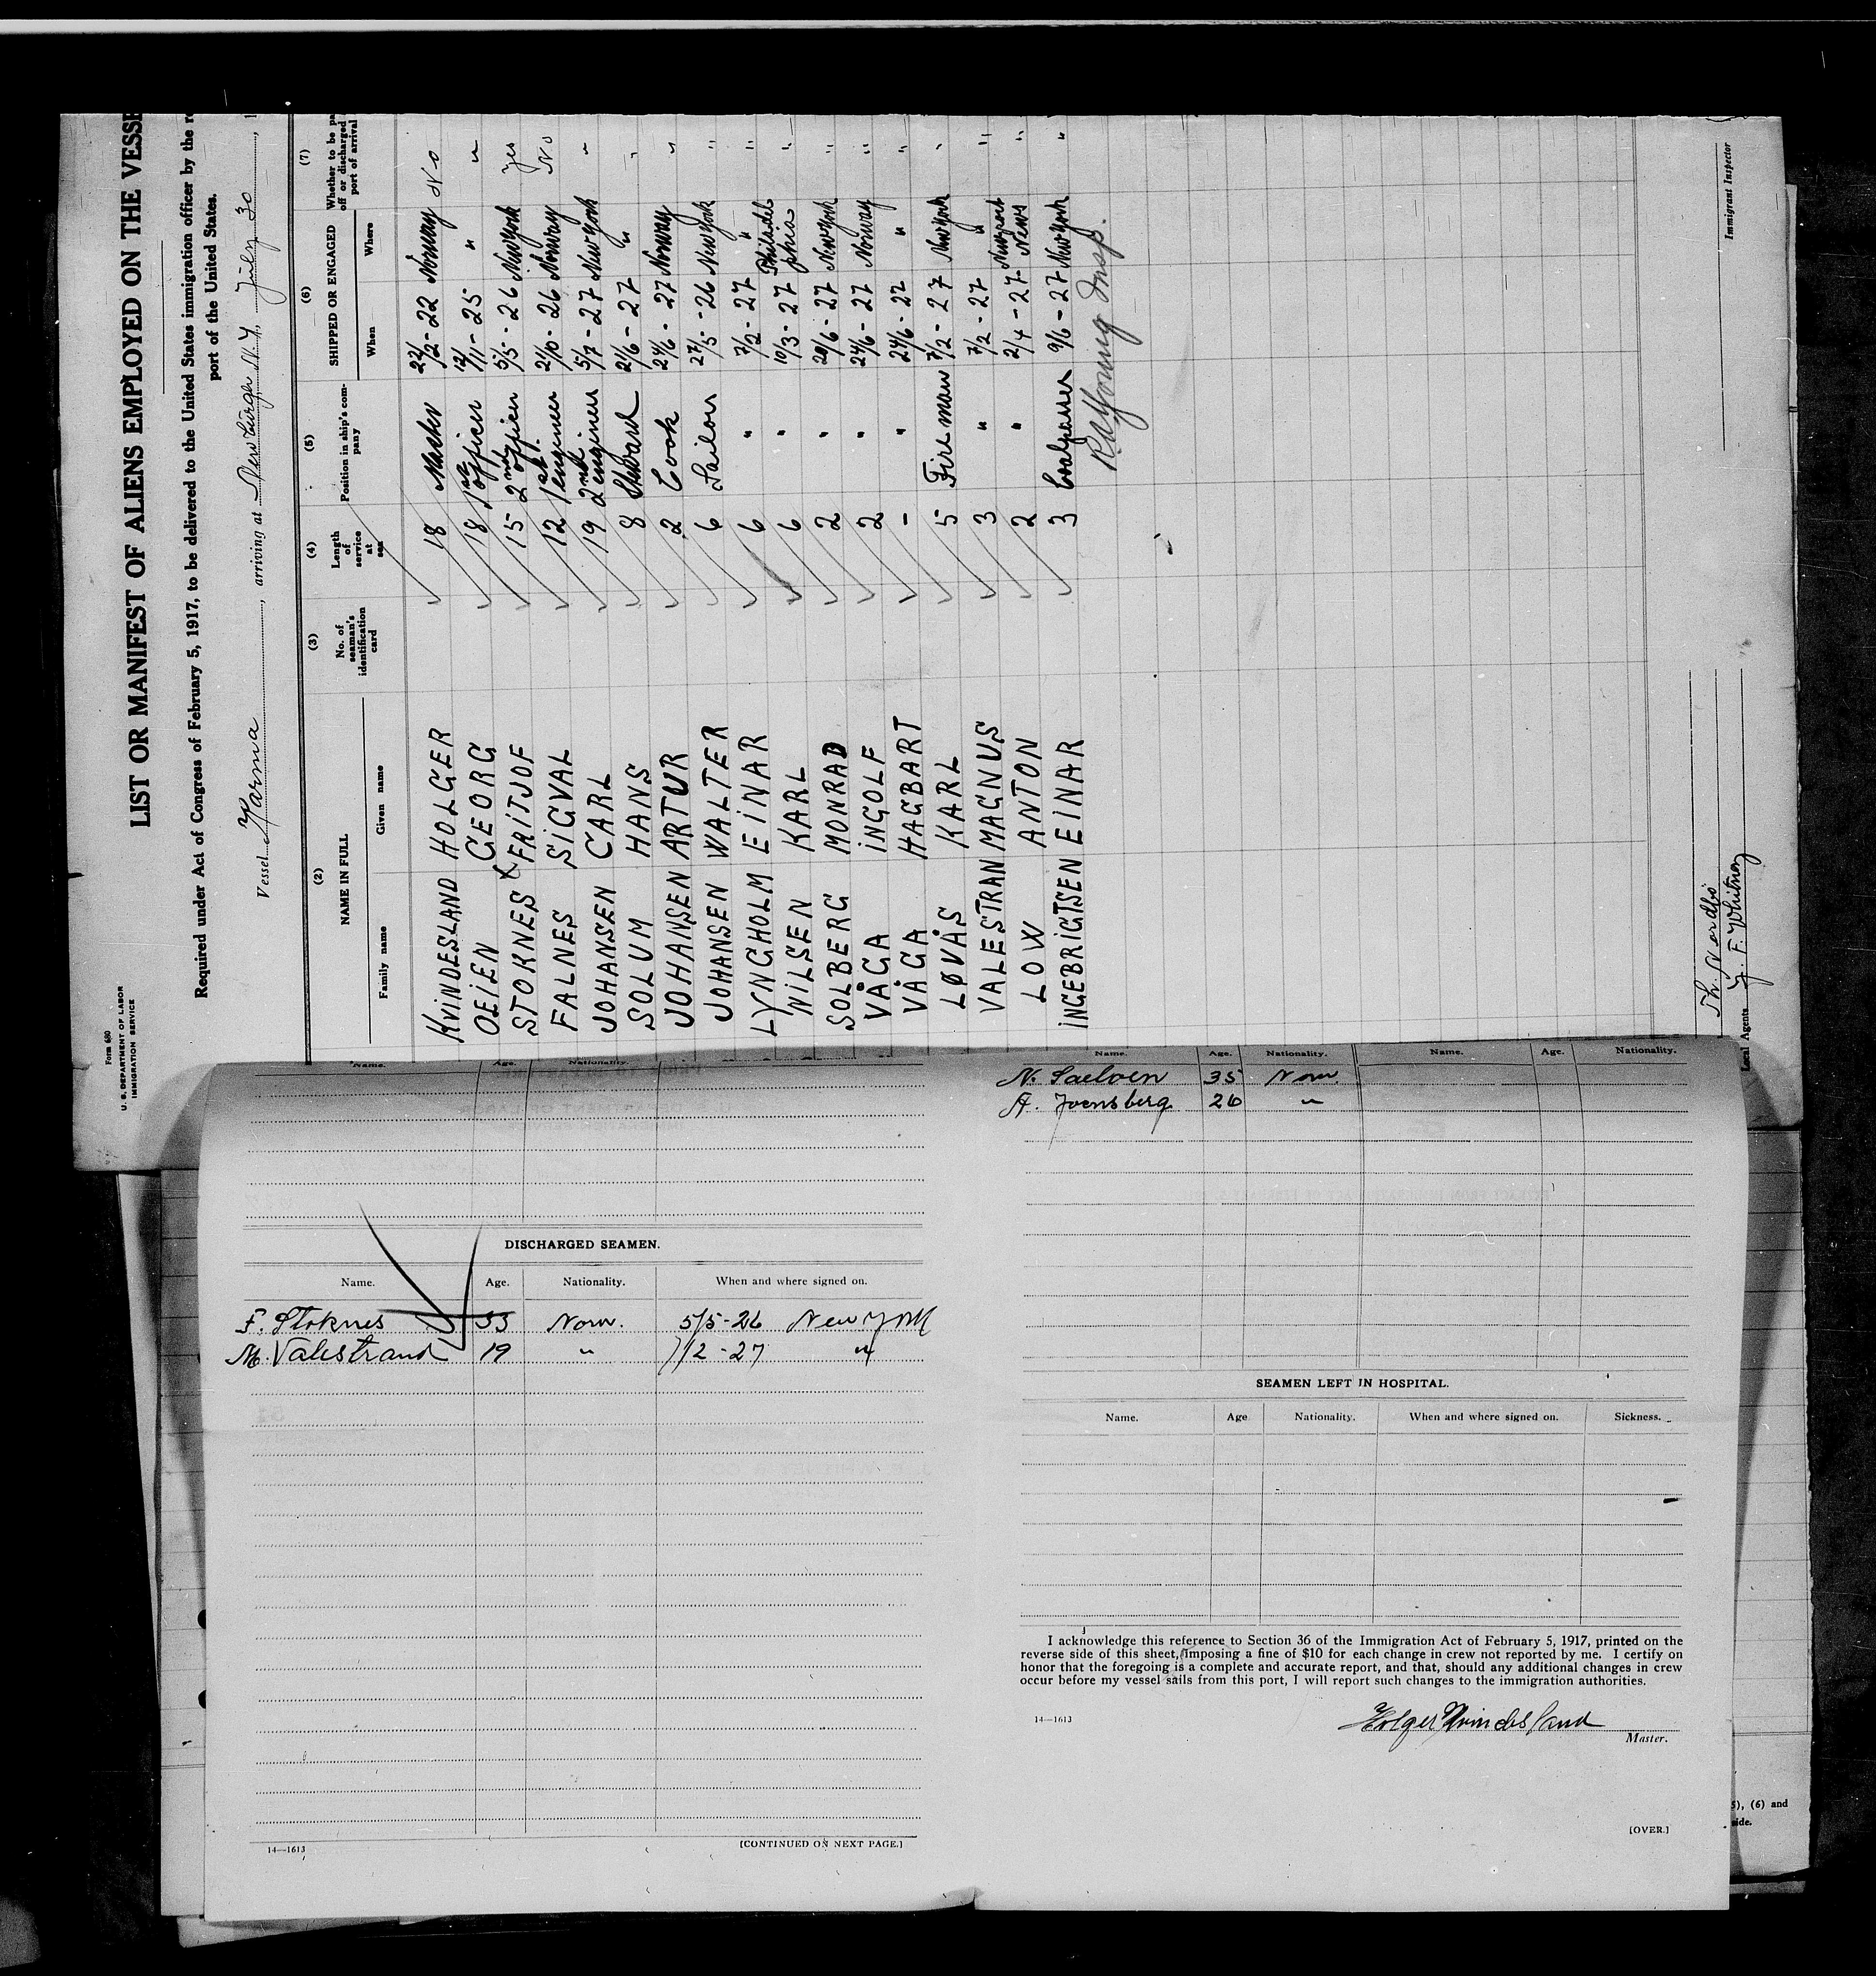 Form 680
U. S. DEPARTMENT OF LABOR
IMMIGRATION SERVICE
LIST OR MANIFEST OF ALIENS EMPLOYED ON THE VESSE
Required under Act of Congress of February 5, 1917, to be delivered to the United States immigration officer by the re
port of the United States.
Vessel Karma, arriving at Newburgh N.Y., July 30, 1
(2) (3) (4) (5) (6) (7)
NAME IN FULL No. of seaman's identification card Length of service at sea Position in ship's company SHIPPED OR ENGAGED Whether to be pa off or discharged port of arrival
Family name Given name When Where
KVINDESLAND HOLGER 18 Master 22/2-22 Norway No
OEIEN GEORG 18 1st officer 12/11-25 " "
STOKNES FRITJOF 15 2nd officer 5/5-26 New York Yes
FALNES SIGVAL 12 1st engineer 21/10-26 Norway No
JOHANSEN CARL 19 2nd engineer 5/7-27 New York "
SOLUM HANS 8 Steward 21/6-27 " "
JOHANSEN ARTUR 2 Cook 24/6-27 Norway "
JOHANSEN WALTER 6 Sailor 27/5-26 New York "
LYNGHOLM EINAR 6 " 7/2-27 " "
NILSEN KARL 6 " 10/3-27 Philadelphia "
SOLBERG MONRAD 2 " 20/6-27 New York "
VÅGA INGOLF 2 " 24/6-27 Norway "
VÅGA HAGBART - " 24/6-27 " "
LØVÅS KARL 5 Fireman 7/2-27 New York "
VALESTRAN MAGNUS 3 " 7/2-27 " "
LOW ANTON 2 " 2/4-27 Newport News "
INGEBRIGTSEN EINAR 3 Coalpasser 9/6-27 New York "
Insp.
Th. Nordbö
J. F. Whitney
Local Agents
Immigrant Inspector
Name. Age. Nationality.
DISCHARGED SEAMEN.
Name. Age. Nationality. When and where signed on.
F. Stoknes 33 Norw. 5/5-26 New York
M. Valestrand 19 " 7/2-27 "
14—1613
[CONTINUED ON NEXT PAGE.]
Name. Age. Nationality. Name. Age. Nationality.
N. Saeloen 35 Norw.
A. 26 "
SEAMEN LEFT IN HOSPITAL.
Name. Age Nationality. When and where signed on. Sickness.
I acknowledge this reference to Section 36 of the Immigration Act of February 5, 1917, printed on the
reverse side of this sheet, imposing a fine of $10 for each change in crew not reported by me. I certify on
honor that the foregoing is a complete and accurate report, and that, should any additional changes in crew
occur before my vessel sails from this port, I will report such changes to the immigration authorities.
Holger Kvindesland
14—1613
Master.
[OVER.]
5), (6) and
side.